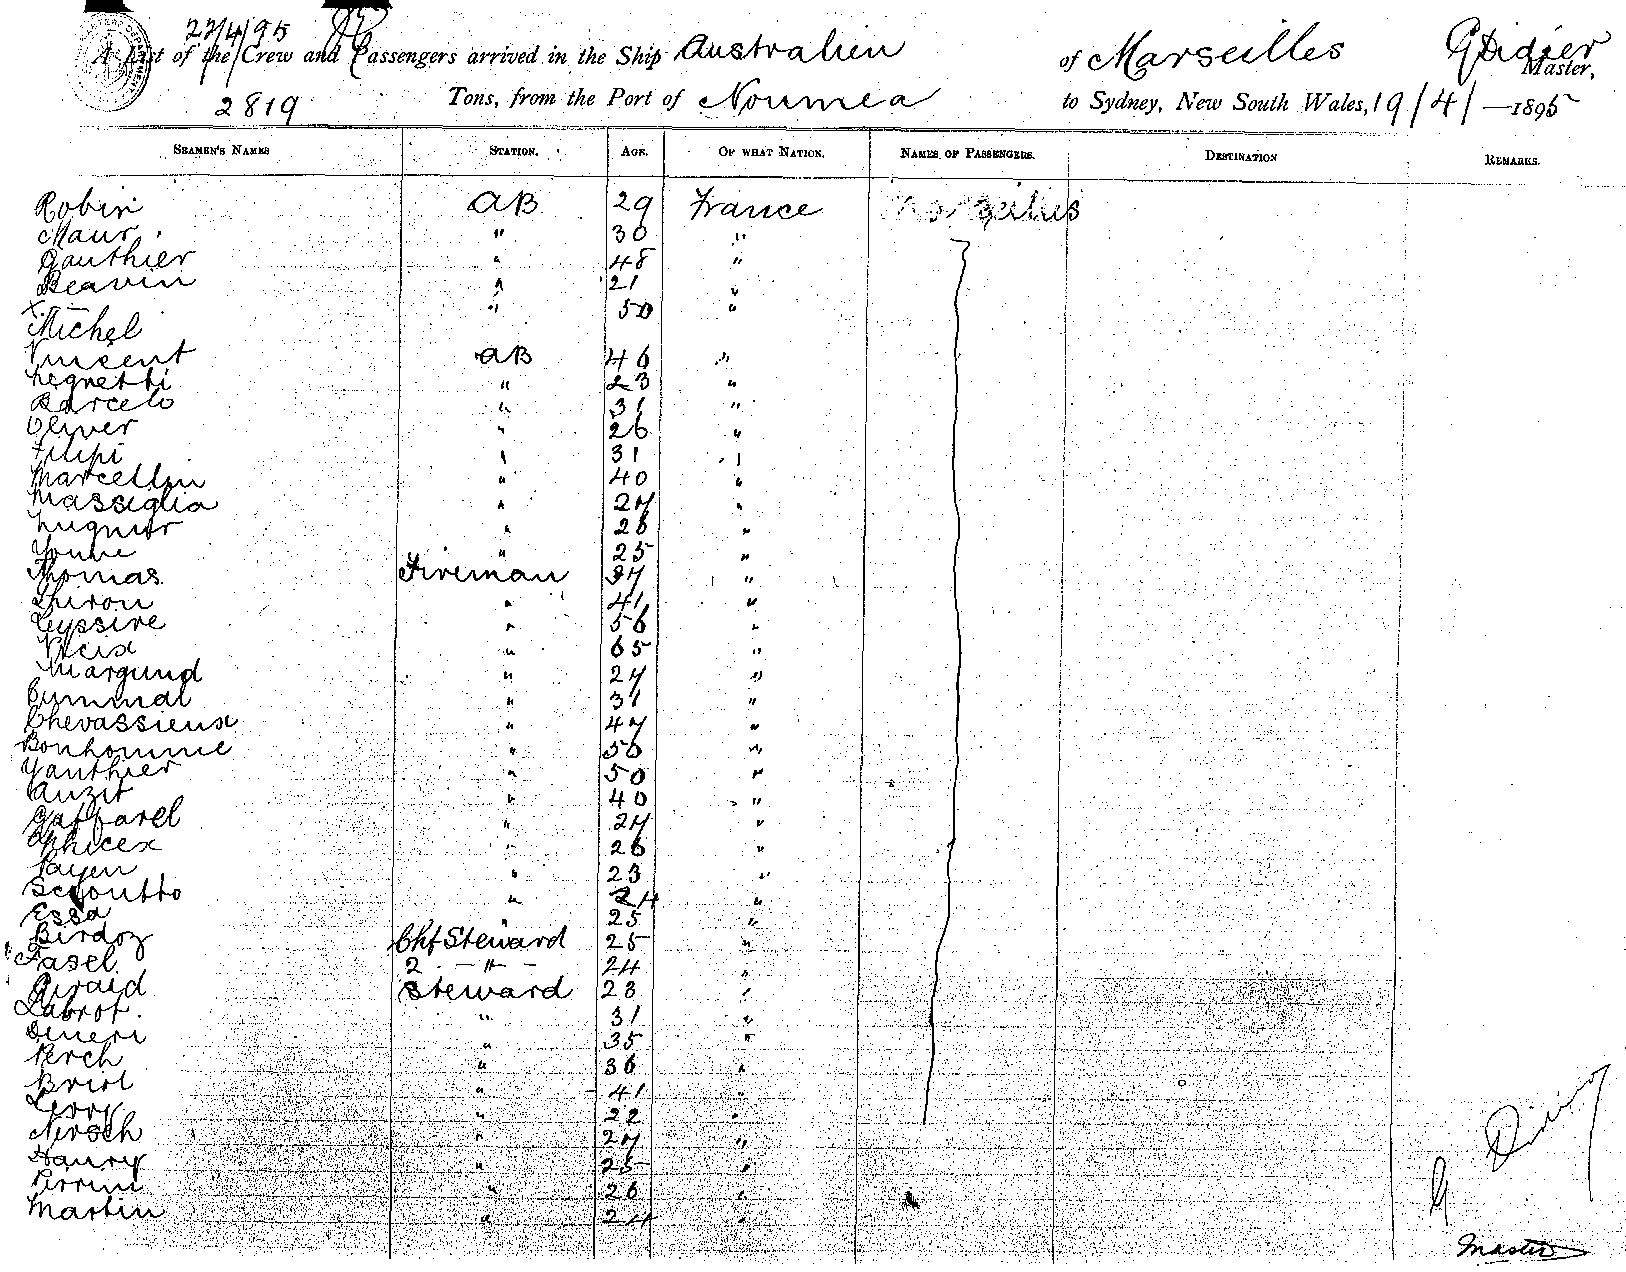 22/4/95
A List of the Crew and Passengers arrived in the Ship Australien of Marseilles G Didier Master,
2819 Tons, from the Port of Noumea to Sydney, New South Wales, 19/4/ —1895
SEAMEN'S NAMES STATION. AGE. OF WHAT NATION. NAMES OF PASSENGERS. DESTINATION REMARKS.
Robin AB 29 France
Maur " 30 "
Gauthier " 48 "
Beavin " 21 "
Michel " 50 "
Vincent AB 46 "
Negretti " 23 "
Barcelo " 31 "
Oliver " 26 "
Filipi " 31 "
Marcellin " 40 "
Massiglia " 27 "
" 26 "
" 25 "
Thomas Fireman 37 "
Thiron " 41 "
Eyssire " 56 "
" 65 "
" 27 "
" 31 "
Chevassieux " 47 "
Bonhomme " 50 "
Gauthier " 50 "
Auzit " 40 "
Gaffarel " 27 "
" 26 "
Payen " 23 "
" 24 "
Essa " 25 "
Birdoz Chf Steward 25 "
Fasel 2 — " — 24 "
Giraid Steward 23 "
Labrot. " 31 "
" 35 "
Perch " 36 "
Briol " 41 "
Leroy " 22 "
Hirsch " 27 "
Haury " 25 "
Perrini " 26 "
Martin " 24 "
G Didier
Master